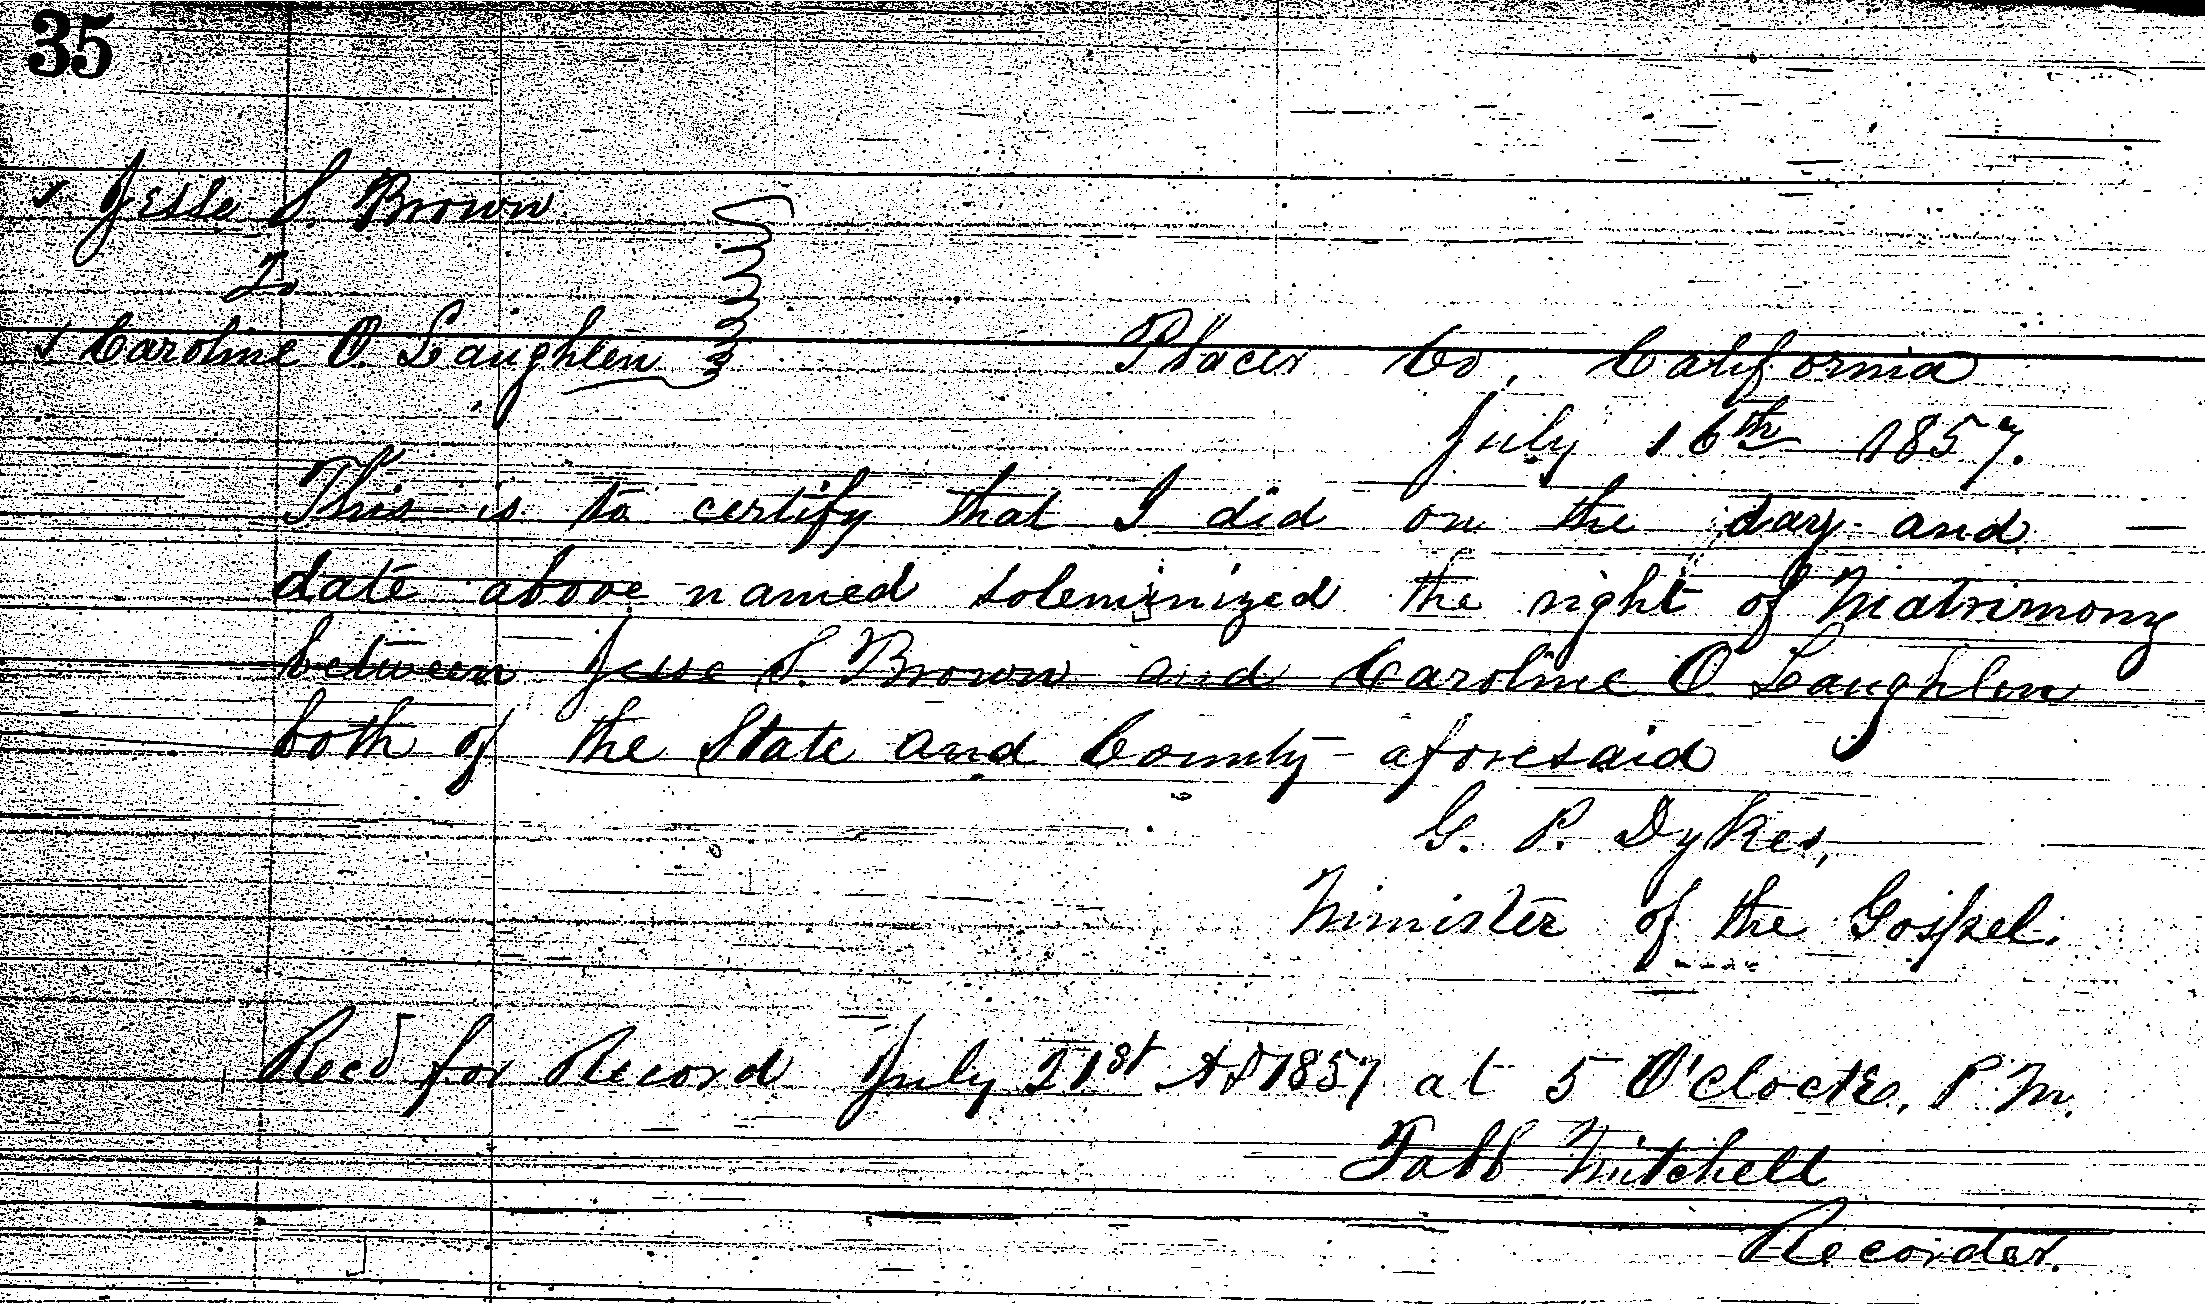 35
Jesse S. Brown
To
Caroline O. Laughlen
Placer Co, California
July 16th 1857.
This is to certify that I did on the day and —
date above named solemnized the right of Matrimony
between Jesse S. Brown and Caroline O. Laughlen
both of the State and County aforesaid
G. P. Dykes,
Minister of the Gospel.
Recd for Record July 21st AD 1857 at 5 O'Clock, P.M.
Tabb Mitchell
Recorder.